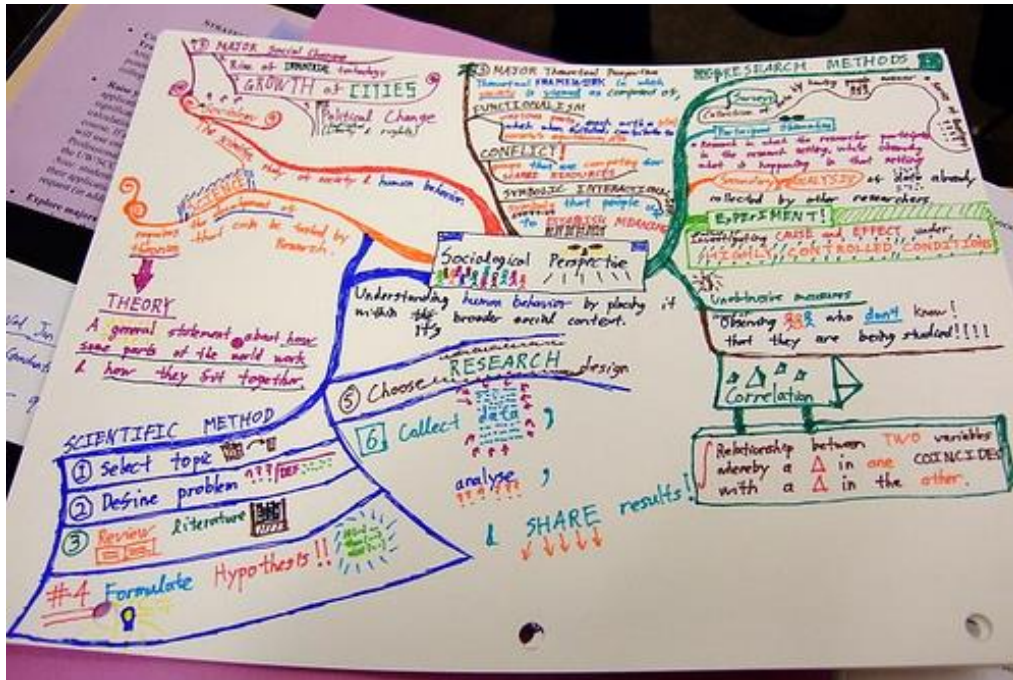 ③ MAJOR Social Changes
Rise of INDUSTRIAL technology
GROWTH of CITIES
Political Change
& rights)
Sociology
The scientific study of society & human behavior.
SCIENCE
requires the development of
theories that can be tested by
Research.
THEORY
A general statement about how
some parts of the world work
& how they fit together.
③ MAJOR Theoretical Perspective
Theoretical FRAMEWORK in which
society is viewed as component of,
FUNCTIONALISM
various parts, each with a
which when fulfilled, contribute to
society's
CONFLICT!
groups that are competing for
SCARCE RESOURCES
SYMBOLIC INTERACTION
symbols that people use
to ESTABLISH MEANING
RESEARCH METHODS
Surveys
Collection of data by having
Participant Observation
Research in what the researcher participate
in the research setting, while observing
what is happening in that setting
Secondary ANALYSIS of data already
collected by other researchers.
EXPERIMENT!
Investigating CAUSE and EFFECT under
HIGHLY CONTROLLED CONDITIONS
Unobtrusive measures
Observing who don't know!
that they are being studied!!!!
Correlation
Relationship between TWO variables
whereby a Δ in one COINCIDES
with a Δ in the other.
Sociological Perspective
Understanding human behavior by placing it
within its broader social context.
SCIENTIFIC METHOD
① Select topic
② Define problem
③ Review literature
#4 Formulate Hypothesis!!
⑤ Choose RESEARCH design
6. Collect data,
analyse,
& SHARE results!
STRATE
Explore majors